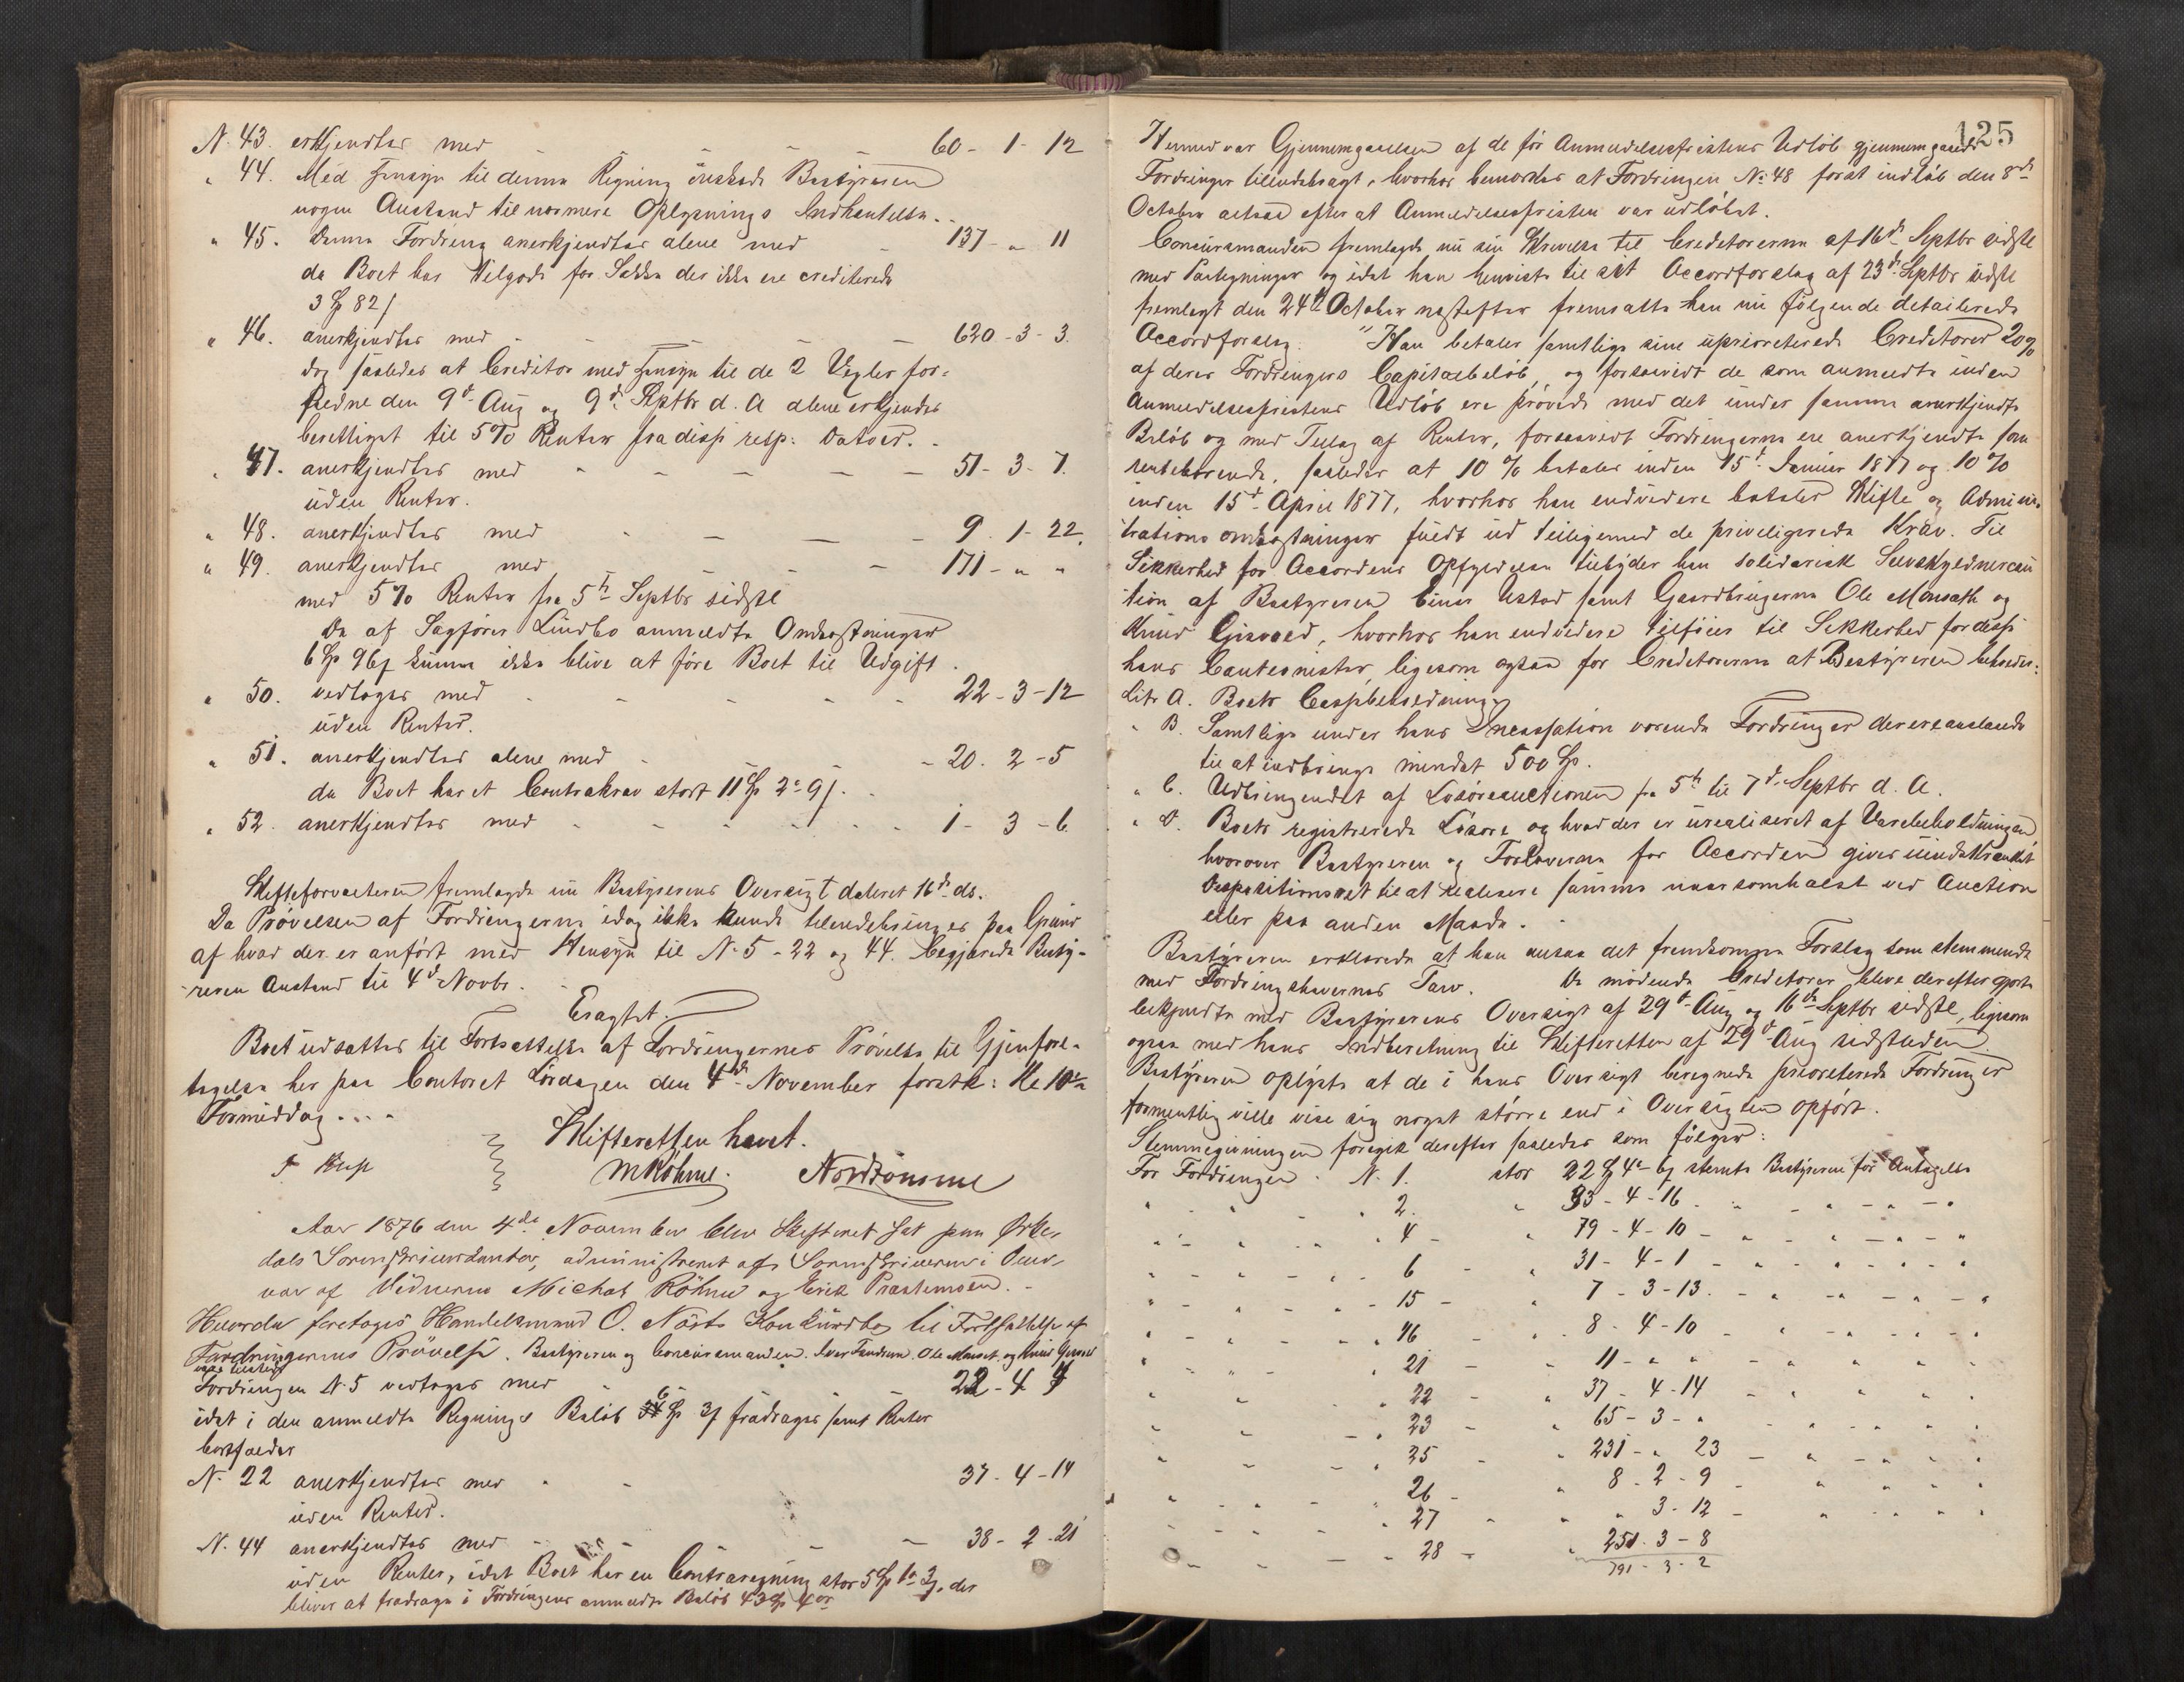 N. 43. erkjendtes med - - - - 60 - 1 - 12
" 44. Med Hensyn til denne Regning önskede Bestyreren
nogen Anstand til nærmere Oplysnings Indhentelse.
" 45. Denne Fordring anerkjendtes alene med - 137 - " 11
da Boet har tilgode for Sække der ikke ere crediterede
3 Sp 82 ſ
" 46. anerkjendtes med - - - - 620 - 3 - 3.
dog saaledes at Creditor med Hensyn til de 2 Vexler for-
faldne den 9de Aug og 9de Septbr d. A alene erkjendes
berettiget til 5 % Renter fra disse resp: Datoer.
" 47. anerkjendtes med - - - - 51 - 3 - 7.
uden Renter.
" 48. anerkjendtes med - - - - 9. 1 - 22.
" 49. anerkjendtes med - - - 171 - " "
med 5 % Renter fra 5te Septbr sidstl
De af Sagförer Lindbo anmeldte Omkostninger
6 Sp 96 ſ kunne ikke blive at före Boet til Udgift.
" 50. vedtoges med - - - - 22 - 3 - 12
uden Renter.
" 51. anerkjendtes alene med - - - 20. 2 - 5
da Boet har et Contrakrav stort 11 Sp 2 " 9 ſ.
" 52. anerkjendtes med - - - - 1 - 3 - 6
Skifteforvalteren fremlagde nu Bestyrerens Oversigt dateret 16de ds.
Da Prövelsen af Fordringerne idag ikke kunde tilendebringes paa Grund
af hvad der er anfört med Hensyn til N. 5 - 22 og 44. begjærede Besty-
reren Anstand til 4de Novbr.
Eragtet.
Boet udsattes til Fortsættelse af Fordringernes Prövelse til Gjenfore-
tagelse her paa Contoret Lördagen den 4de November förstk: Kl 10
Formiddag.
Skifteretten hævet.
MRöhme. Nordrönsme
Aar 1876 den 4de November blev Skifteret sat paa Orke-
dals Sorenskriverkontor, administreret af Sorenskriveren i Over-
vær af Vidnerne Michal Röhme og Erik Præstemoen.
Hvorda foretoges Handelsmand O. Næsts Konkursbo til Fortsættelse af
Fordringernes Prövelse. Bestyreren og Concursmanden. Iver Fandrem. Ole Monset og Knud Grisvol
vare tilstede
Fordringen N. 5 vedtoges med - 22 - 4 9
idet i den anmeldte Regnings Belöb 6 Sp 3 ſ fradrages samt Renter
bortfalder
N. 22 anerkjendtes med - - 37 - 4 - 14
uden Renter.
N. 44 anerkjendtes med - - - 38 - 2 - 21
uden Renter, idet Boet har en Contraregning stor 5 Sp 1 " 3 ſ, der
bliver at fradrage i Fordringens anmeldte Belöb 43 Sp 4
125
Hermed var Gjennemgaaelsen af de för Anmeldelsesfristens Udlöb gjennemgaaede
Fordringer tilendebragt, hvorhos bemærkes at Fordringen No. 48 förat indlöb den 8de
October altsaa efter at Anmeldelsesfristen var udlöbet.
Concursmanden fremlagde nu sin Skrivelse til Creditorerne af 16de Septbr sidstl
med Paategninger og idet han henviste til sit Accordforslag af 23de Septbr sidstl
fremlagt den 24de October næstefter fremsatte han nu fölgende detaillerede
Accordforslag. "Han betaler samtlige sine uprioriterede Creditorer 20 %
af deres Fordringers Capitalbelöb, og forsaavidt de som anmeldte inden
Anmeldelsesfristens Udlöb ere prövede med det under samme anerkjendte
Belöb og med Tillæg af Renter, forsaavidt Fordringerne ere anerkjendte som
rentebærende, saaledes at 10 % betales inden 15de Januar 1877 og 10 %
inden 15de April 1877, hvorhos han endvidere betaler Skifte og Adminis-
trations omkostninger fuldt ud tilligemed de priveligerede Krav. Til
Sikkerhed for Accordens Opfyldelse tilbyder han solidarisk Selvskyldnercau
tion af Bestyreren Einar Ustad samt Gaardbrugerne Ole Monsath og
Knud Grisvold, hvorhos han endvidere tilföier til Sikkerhed for disse
hans Cautionister, ligesom ogsaa for Creditorerne at Bestyreren beholder:
Litr A. Boets Cassebeholdning
" B. Samtlige under hans Incassation værende Fordringer der ere anslaaede
til at indbringe mindst 500 Sp.
" C. Udbringendet af Lösöreauctionen fra 5te til 7de Septbr d. A.
" D. Boets registrerede Lösöre og hvad der er urealiseret af Varebeholdningen
hvorover Bestyreren og Forloverne for Accorden gives uindskrænket
Dispositionsret til at realisere samme naarsomhelst ved Auction
eller paa anden Maade.
Bestyreren erklærede at han ansaa det fremkomne Forslag som stemmende
med Fordringshavernes Tarv. De mödende Creditorer bleve derefter gjorte
bekjendte med Bestyrerens Oversigt af 29de Aug og 16de Septbr sidstl, ligesom
ogsaa med hans Indberetning til Skifteretten af 29de Aug sidstleden.
Bestyreren oplyste at de i hans Oversigt beregnede prioreterede Fordringer
formentlig ville vise sig noget större end i Oversigten opfört.
Stemmegivningen foregik derefter saaledes som fölger:
For Fordringen N. 1. stor 22 Sp 4 " 6 ſ stemte Bestyreren for Antagelse
" - - " 2. " 33 - 4 - 16 - " - " - "
" - - " 4 - " 79 - 4 - 10 - " - " - "
" - - " 6 - " 31 - 4 - 1 - " - " - "
" - - " 15 - " 7 - 3 - 13. - " - " - "
" - - " 16 - " 8 - 4 - 10 - " - " - "
" - - " 21 - " 11 - " " - " - " - "
" - - " 22 - " 37 - 4 - 14 - " - " - "
" - - " 23 - " 65 - 3 - " - " - " - "
" - - " 25 - " 231 - " 23 - " - " - "
" - - " 26 - " 8 - 2 - 9 - " - " - "
" - - " 27 " " 3 - 12 - " - " - "
" - - " 28 - " 251. 3 - 8
791 - 3 - 2